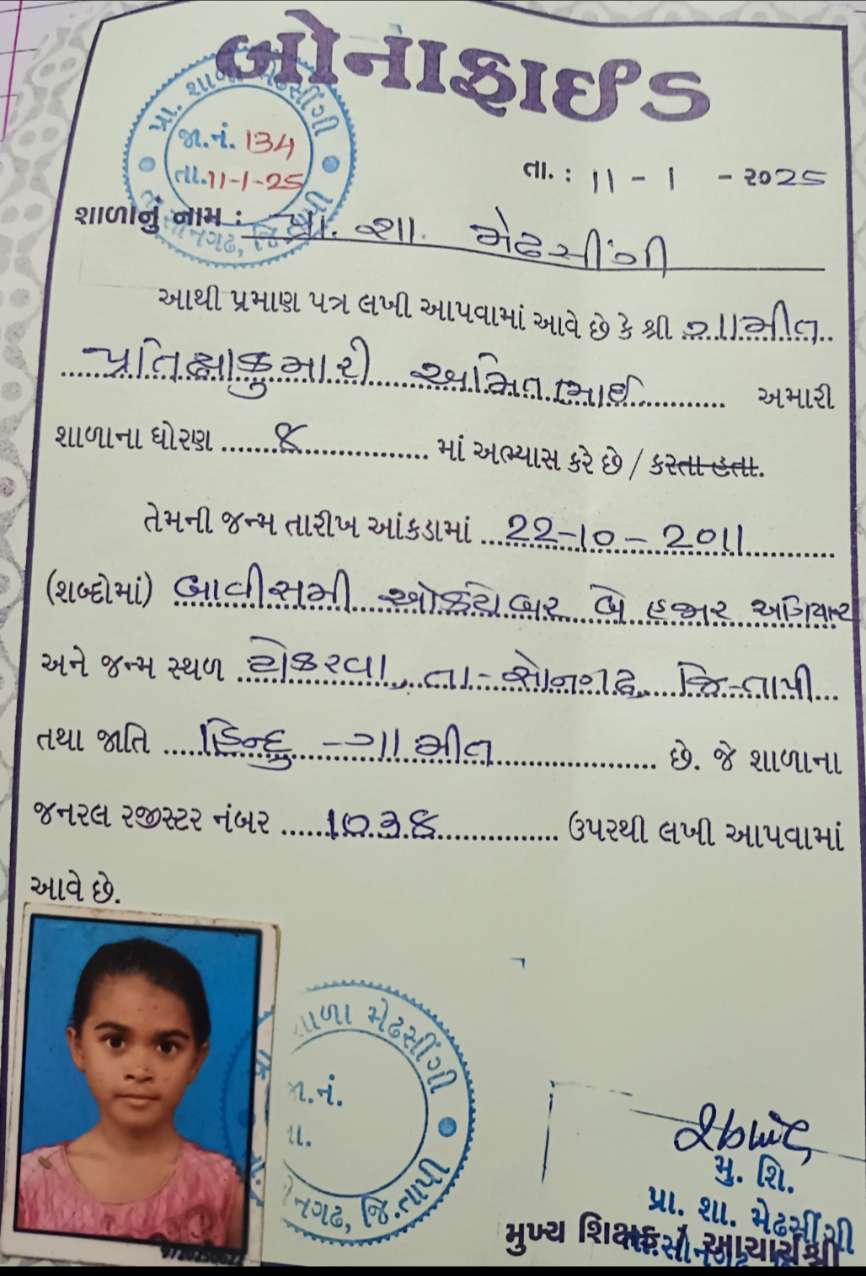 બોનાફાઈડ
પ્રા. શાળા મેઢસીંગી
જા.નં. 134
તા.11-1-25
સોનગઢ, જિ. તાપી
તા. : 11 - 1 - ૨૦25
શાળાનું નામ : પ્રા. શા. મેઢસીંગી
આથી પ્રમાણ પત્ર લખી આપવામાં આવે છે કે શ્રી ગામીત
પ્રતિક્ષાકુમારી અમિતભાઈ અમારી
શાળાના ધોરણ ૪ માં અભ્યાસ કરે છે / કરતા હતા.
તેમની જન્મ તારીખ આંકડામાં 22-10-2011
(શબ્દોમાં) બાવીસમી ઓક્ટોબર બે હજાર અગિયાર
અને જન્મ સ્થળ ટોકરવા, તા-સોનગઢ, જિ-તાપી
તથા જાતિ હિન્દુ - ગામીત છે. જે શાળાના
જનરલ રજીસ્ટર નંબર ઉપરથી લખી આપવામાં
આવે છે.
શાળા મેઢસીંગી
જા.નં.
તા.
સોનગઢ, જિ.તાપી
મુ. શિ.
પ્રા. શા. મેઢસીંગી
મુખ્ય શિક્ષક / આચાર્યશ્રી